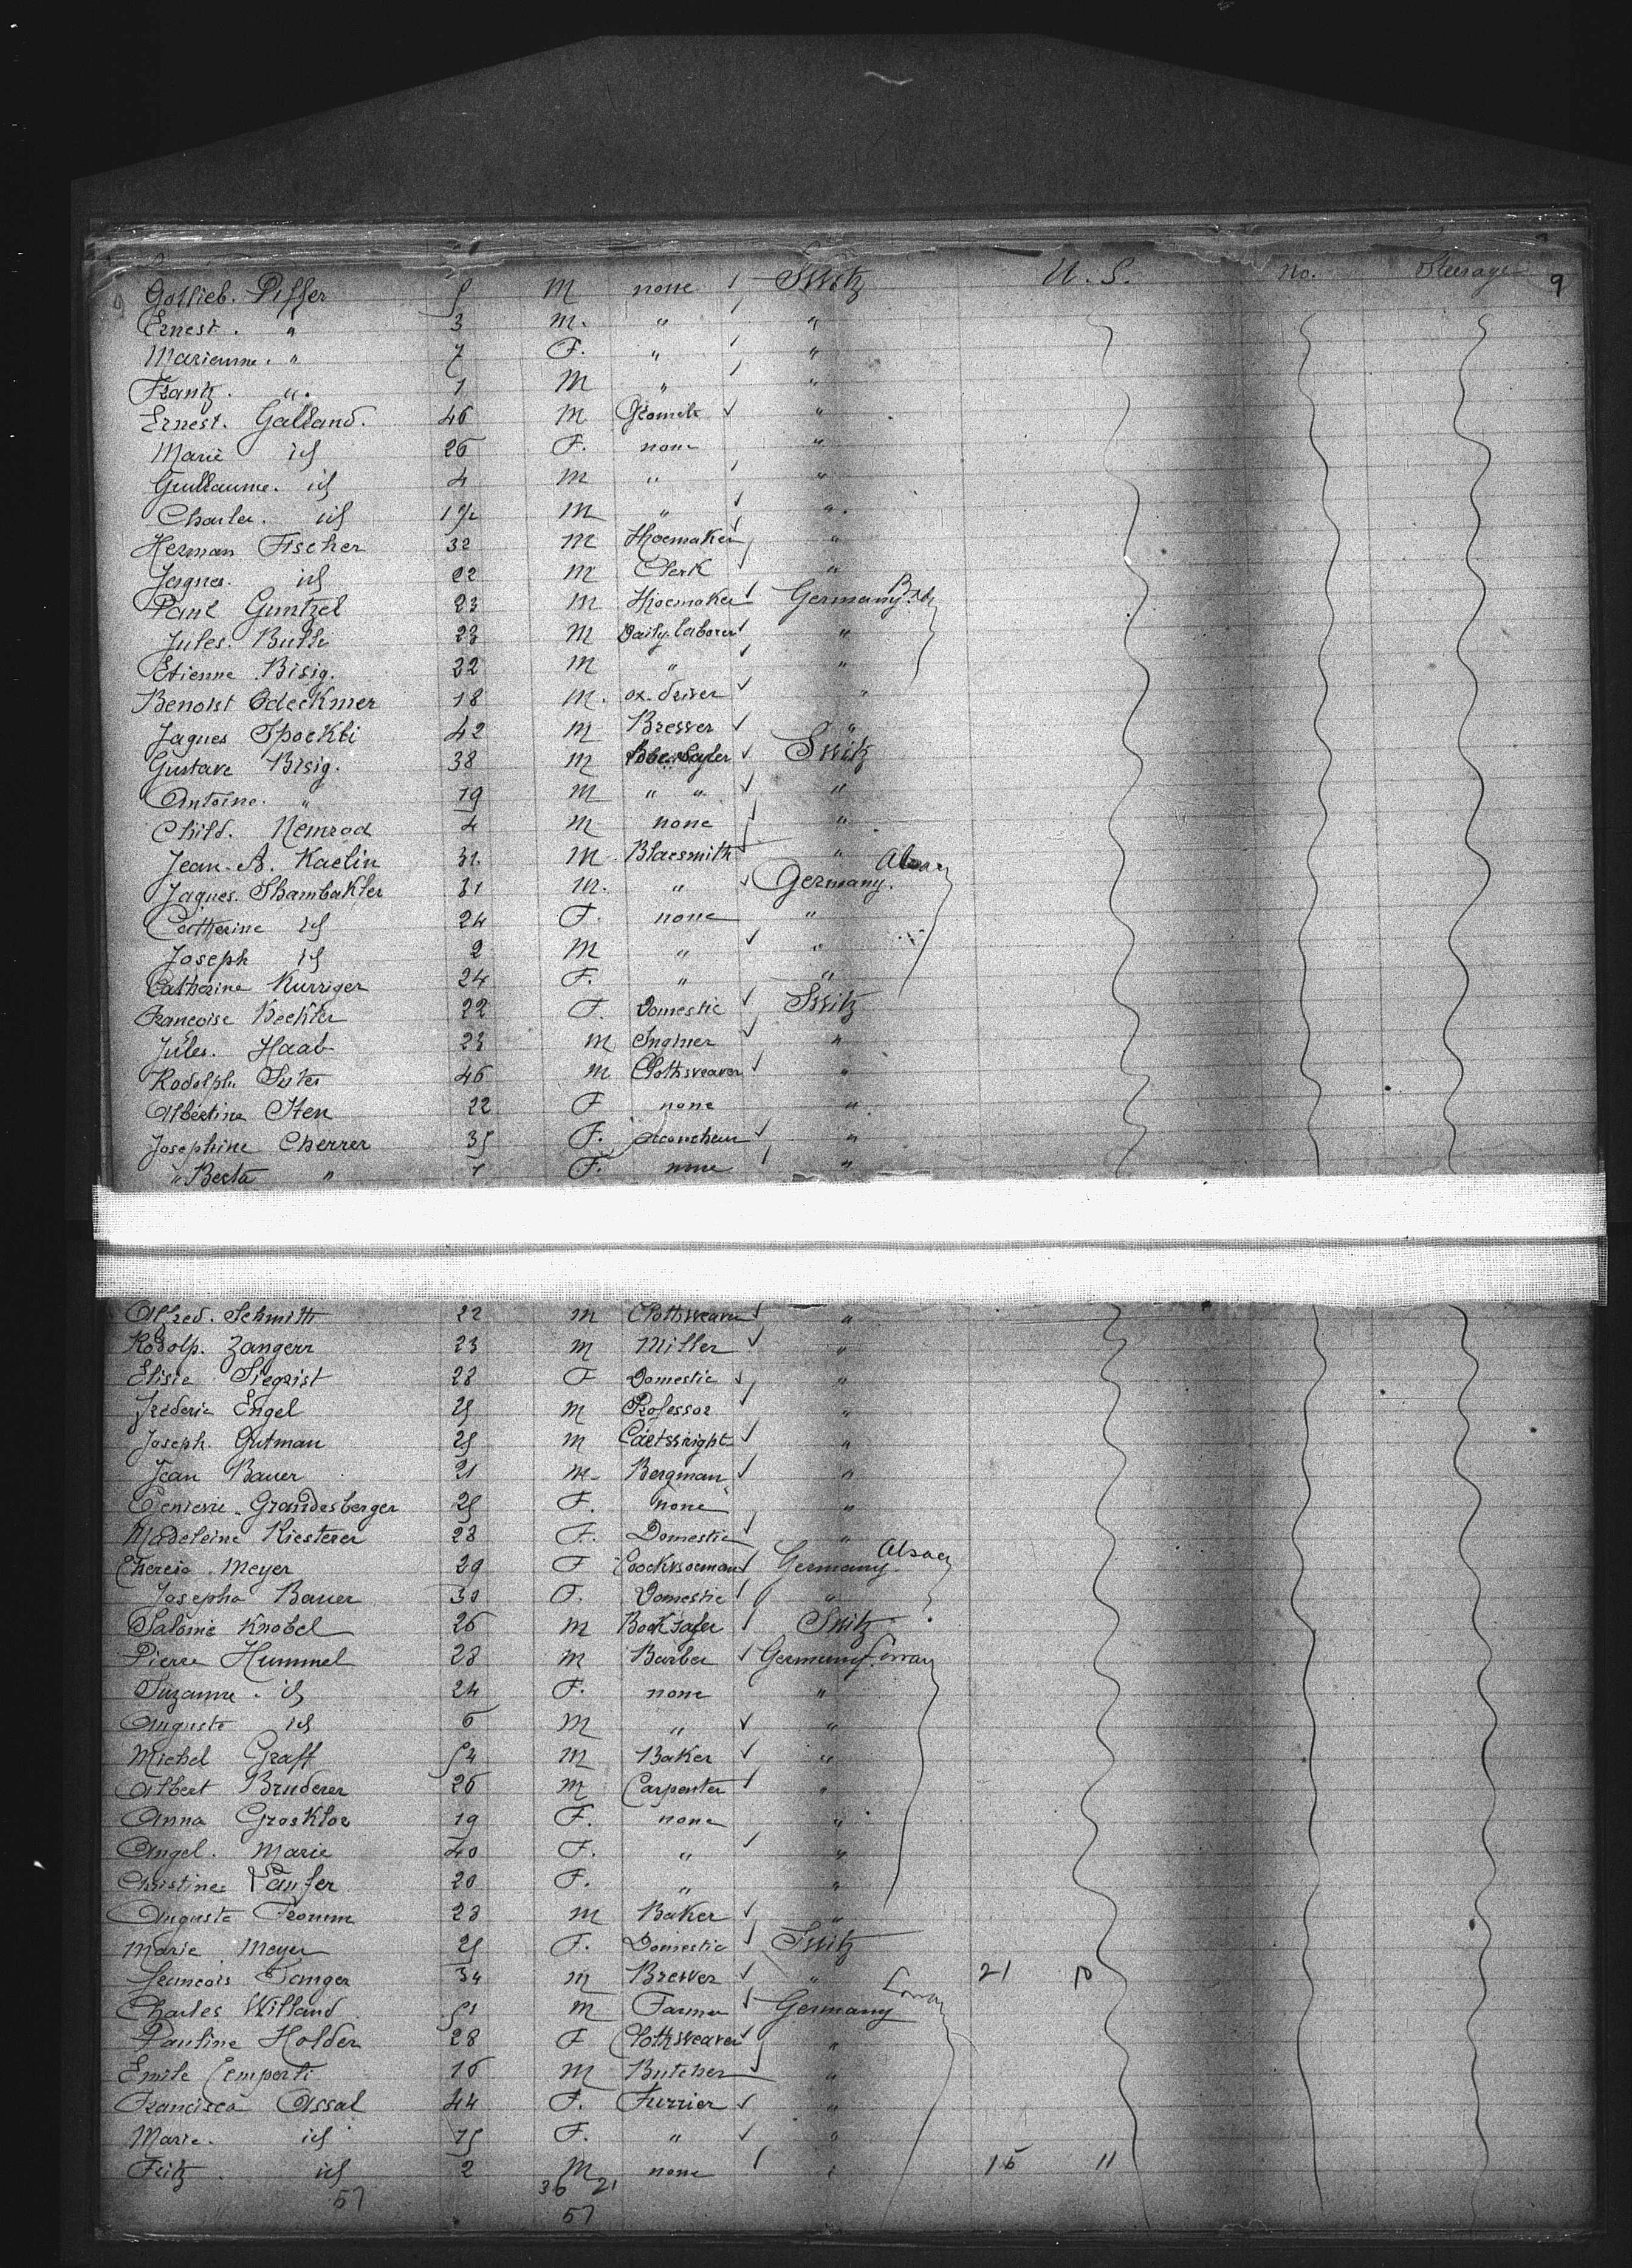 Gottlieb. Piffer 5 M none Switz U. S. No. Steerage 9
Ernest. " 3 m. " "
Marianne. " 7 F. " "
Frantz. " 1 M " "
Ernest. Galland. 46 M "
Marie id 26 F. none "
Guillaume. id 4 M " "
Charles. id 1 1/2 M " "
Herman Fischer 32 M Shoemaker "
Jagues. id 22 M Clerk "
Paul Guntzel 23 M Shoemaker Germany
Jules. Buthi 23 M Daily. laborer "
Etienne. Bisig. 22 M " "
Benoist Odeckmer 18 M. ox. driver "
Jaques Spockli 42 M Brewer "
Gustave Bisig. 38 M Switz
Antoine. " 19 M " " "
Child. Nemrod 4 M none "
Jean. A. Kaelin 31 M Blacsmith "
Jaques. Shambakler 31 M. " Germany. Alsac
Catherine id 24 F. none "
Joseph id 2 M " "
Catherine Kurriger 24 F. " "
Francoise Bechler 22 F. Domestic Switz
Jules. Haab 23 M Inginer "
Rodolphe Suter 46 M Clothsweaver "
Albertine Iten 22 F none "
Josephine Cherrer 35 F. accoucheur "
" Berta " 1 F. none "
Alfred. Schmitt 22 M Clothsweaver "
Rodolp. Zangerr 23 M Miller "
Elisie Siegrist 28 F Domestic "
Frederic Engel 25 M Professor "
Joseph. Gutman 25 M Cartwright "
Jean Bauer 21 M Bergman "
Grandesberger 25 F. none "
Madeleine Kiesterer 28 F. Domestic "
Theresa. Meyer 29 F Germany. Alsac
Josepha Bauer 30 F. Domestic "
Salomé Knobel 26 M Switz
Pierre Hummel 28 M Barber Germany Lorray
Suzanne. id 24 F. none "
Auguste id 6 M " "
Michel Graff 54 M Baker "
Albert Bruderer 26 M Carpenter "
Anna Grosklos 19 F. none "
Angel. Marie 40 F. " "
Christine Laufer 20 F. " "
Auguste Fromm 28 M Baker "
Marie Meyer 25 F. Domestic Switz
Francois Danger 34 M Brewer " 21 10
Charles Willand 51 M Farmer Germany Lorray
Pauline Holder 28 F Clothsweaver "
Emile Cemperli 16 M Butcher "
Francisca Assal 44 F. Furrier "
Marie. id 15 F. " "
Fritz. id 2 M none " 15 11
57 36 21
57